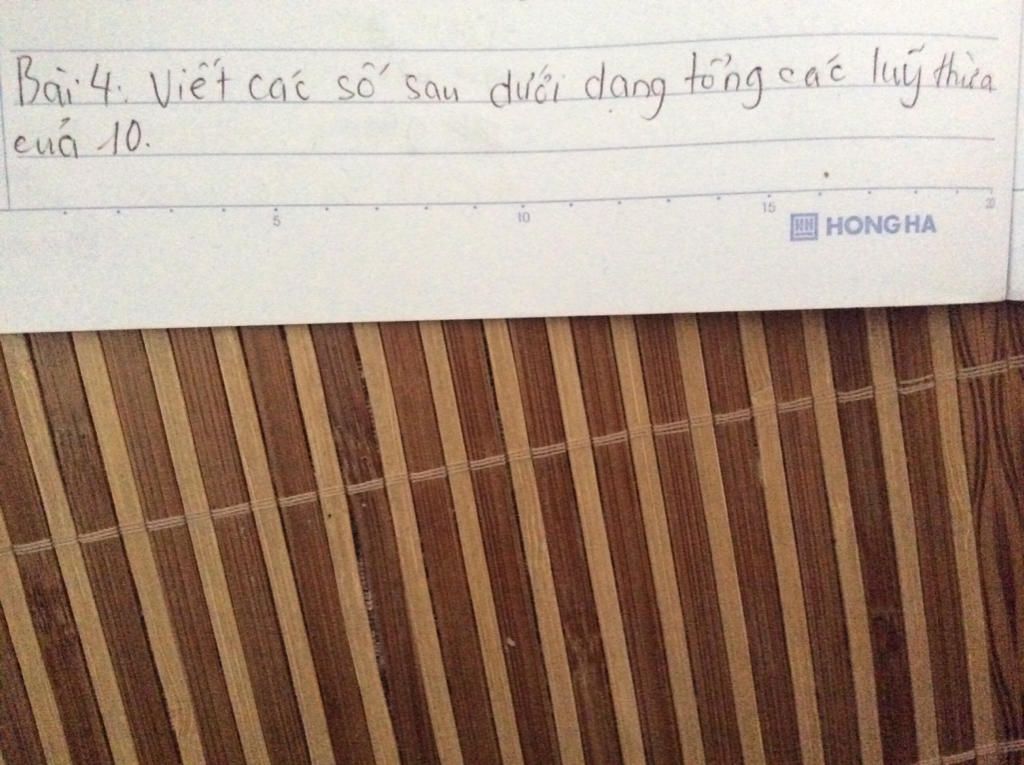 Bài 4. Viết các số sau dưới dạng tổng các luỹ thừa
của 10.
5 10 15 20
HH HONG HA